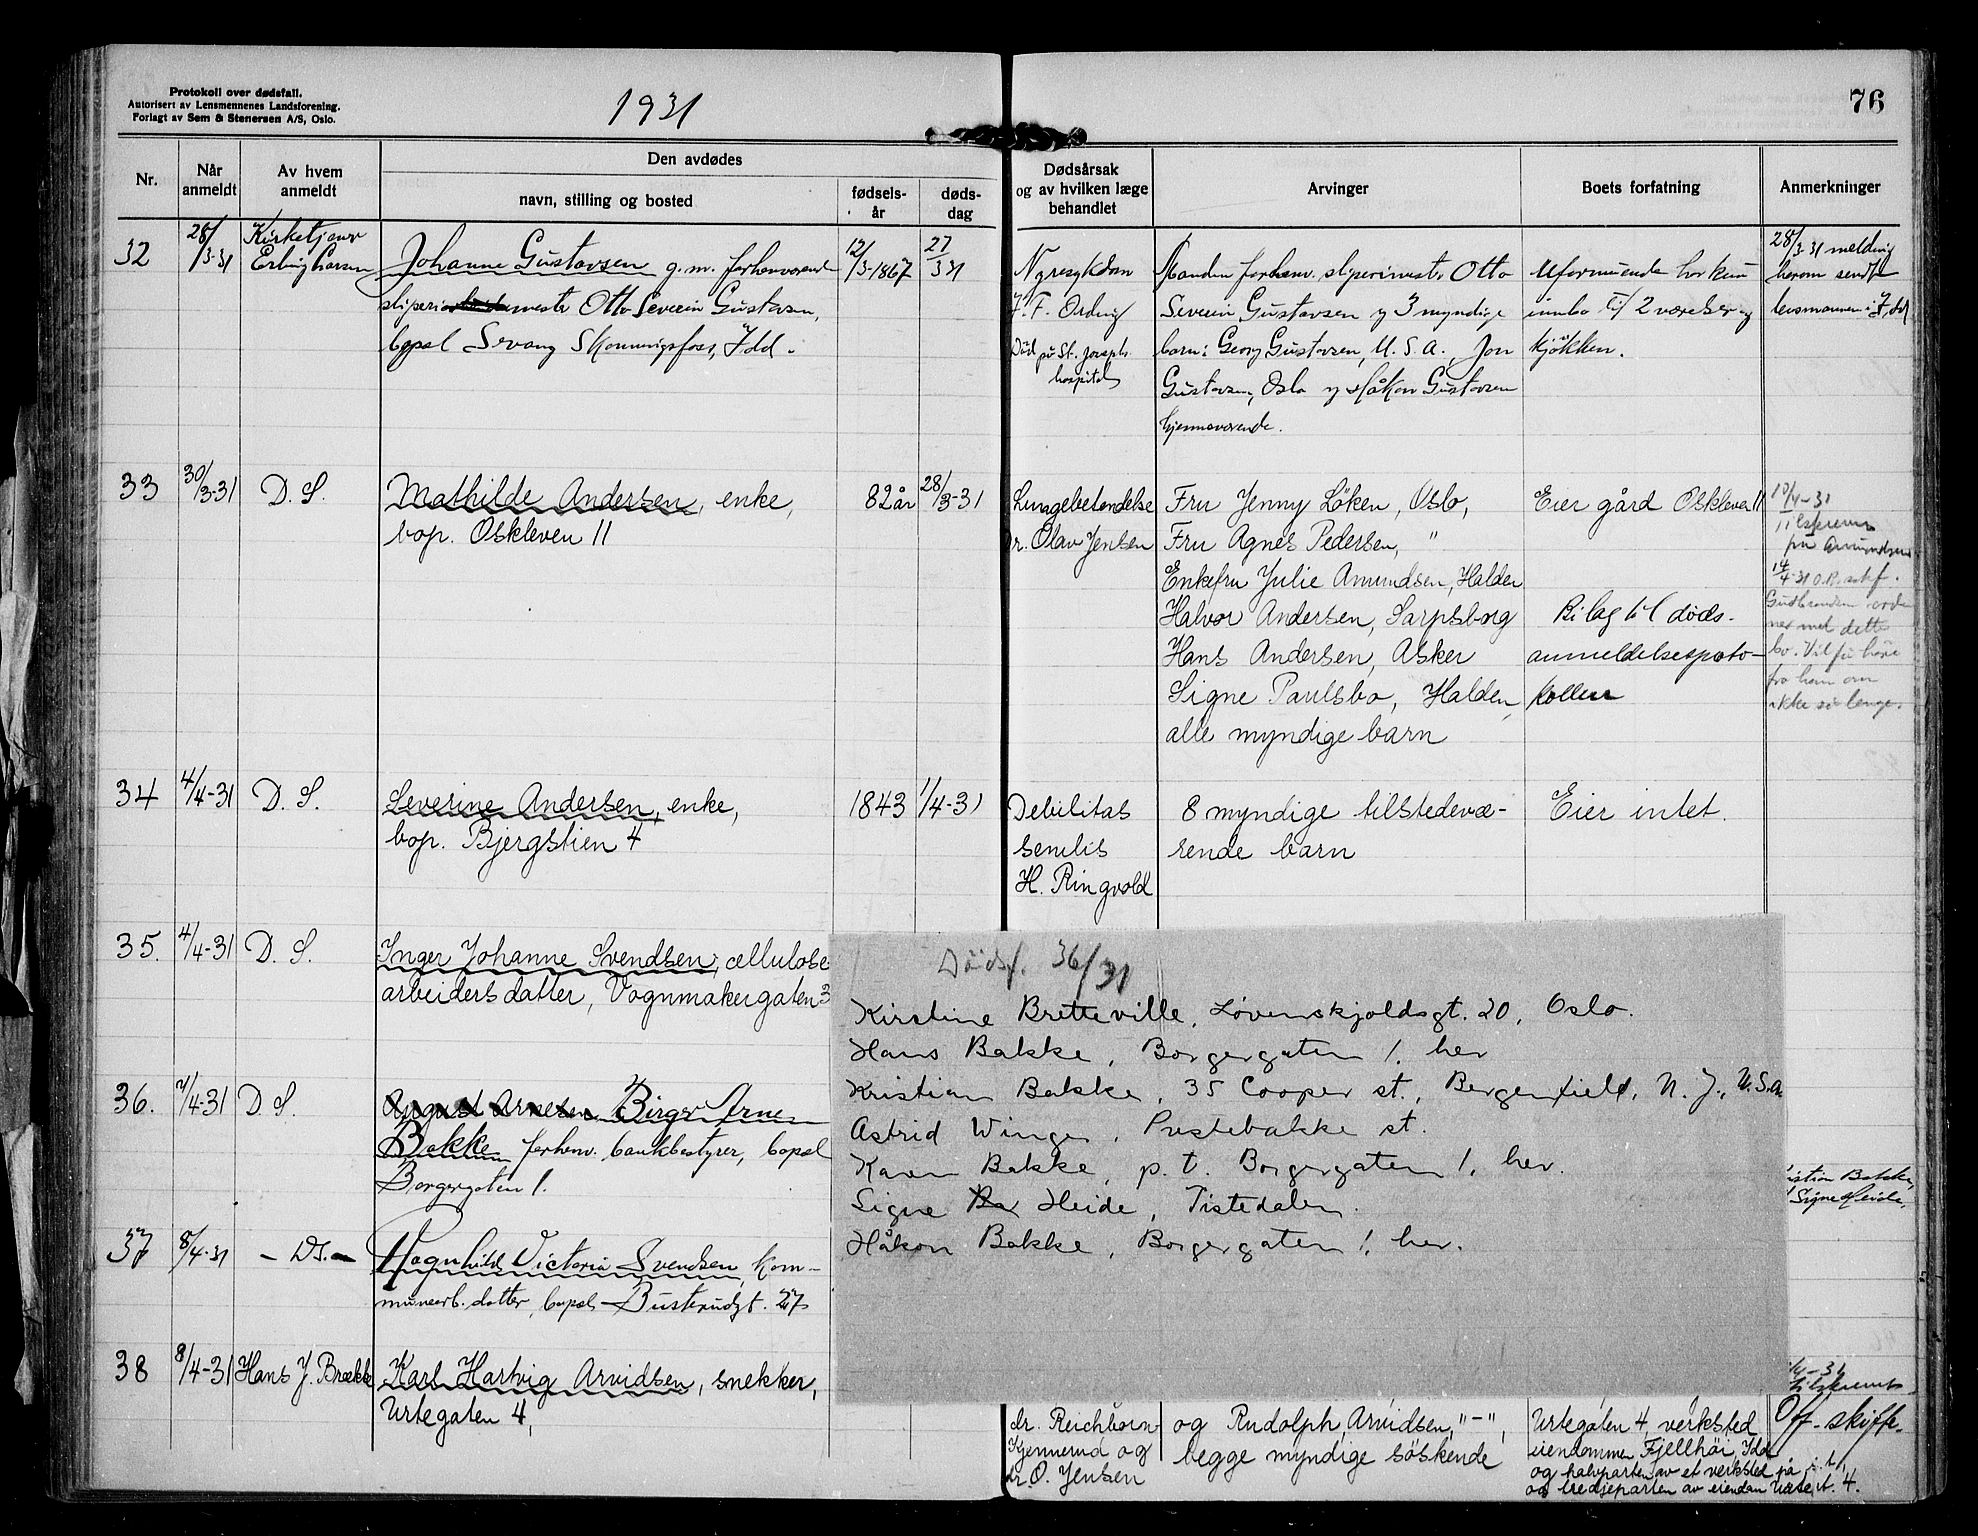 Protokoll over dødsfall.
Autorisert av Lensmennenes Landsforening.
Forlagt av Sem & Stenersen A/S, Oslo.
1931
76
Nr.
Når anmeldt
Av hvem anmeldt
Den avdødes
navn, stilling og bosted
fødsels-år
døds-dag
Dødsårsak og av hvilken læge behandlet
Arvinger
Boets forfatning
Anmerkninger
32
28/3-31
Kirketjener
Erling Larsen
Johanne Gustavsen g.m. forhenværende
sliperimester Otto Severin Gustavsen,
bopel Svang Skonningsfoss, Idd.
12/3-1867
27/3 31
Nyresykdom
F. Ording
Död på St. Josephs
hospital
Manden forhenv. sliperimestr. Otto
Severin Gustavsen og 3 myndige
barn: Georg Gustavsen, U.S.A., Jon
Gustavsen, Oslo og Håkon Gustavsen
hjemmeværende.
Uformuende har kun
innbo til 2 værelser og
kjøkken.
28/3 31 melding
herom sendt
lensmannen i Idd
33
30/3-31
D. S.
Mathilde Andersen, enke,
bop. Oskleven 11
82 år
28/3-31
Lungebetendelse
dr. Olav Jensen
Fru Jenny Löken, Oslo,
Fru Agnes Pedersen, "
Enkefru Julie Amundsen, Halden
Halvor Andersen, Sarpsborg
Hans Andersen, Asker
Signe Paulsbo, Halden,
alle myndige barn
Eier gård Oskleven 11
Bilag til døds-
anmeldelsesproto-
kollen
10/4-31
tilskrevet
fru Amundsen
14/4-31 O.R.sakf.
Gudbrandsen ord-
ner med dette
bo. Vil få höre
fra ham om
ikke så lenge.
34
4/4-31
D. S.
Severine Andersen, enke,
bop. Bjergstien 4
1843
1/4-31
Debilitas
senilis
H. Ringvold
8 myndige tilstedevæ-
rende barn
Eier intet.
35.
4/4-31
D. S.
Inger Johanne Svendsen, cellulose
arbeiders datter, Vognmakergaten 3
36.
7/4-31
D. S.
August Arnesen Birger Arne
Bakke forhenv. bankbestyrer, bopel
Borgergaten 1.
37
8/4-31
- DS. -
Ragnhild Victoria Svendsen, kom-
munearb. datter, bopel Busterudgt. 27
38
8/4-31
Hans J. Brækk
Karl Hartvig Arvidsen, snekker,
Urtegaten 4,
Dödsf. 36/31
Kirstine Bretteville, Løvenskjoldsgt. 20, Oslo.
Hans Bakke, Borgergaten 1, her
Kristian Bakke, 35 Cooper st., Bergenfield, N. J., U.S.A.
Astrid Winge, Prestebakke st.
Karen Bakke, p. t. Borgergaten 1, her.
Signe Ba Heide, Tistedalen.
Håkon Bakke, Borgergaten 1, her.
istian Bakke,
Signe Heide,
tilskrevet
Off. skifte.
dr. Reichborn-
Kjennerud og
dr. O. Jensen
og Rudolph Arvidsen, "-",
begge myndige söskende
Urtegaten 4, verksted
eiendommen Fjellhöi, Idd
og halvparten av et verksted på
og tredjeparten av eiendom Urtegt. 4.